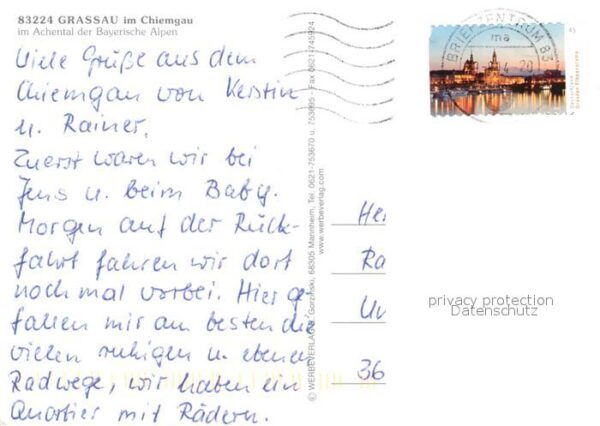 83224 GRASSAU im Chiemgau
im Achental der Bayerische Alpen
Viele Grüße aus dem
Chiemgau von Kerstin
u. Rainer.
Zuerst waren wir bei
Jens u. beim Baby.
Morgen auf der Rück-
fahrt fahren wir dort
noch mal vorbei. Hier ge
fallen mir am besten die
vielen ruhigen u. ebenen
Radwege, wir haben ein
Quartier mit Rädern.
© WERBEVERLAG W. Gorzinski, 68305 Mannheim, Tel. 0621-753670 u. 753695 - Fax 0621-745924
www.werbeverlag.com
BRIEFZENTRUM 83
ma
45
He
Ra
Un
36
privacy protection
Datenschutz